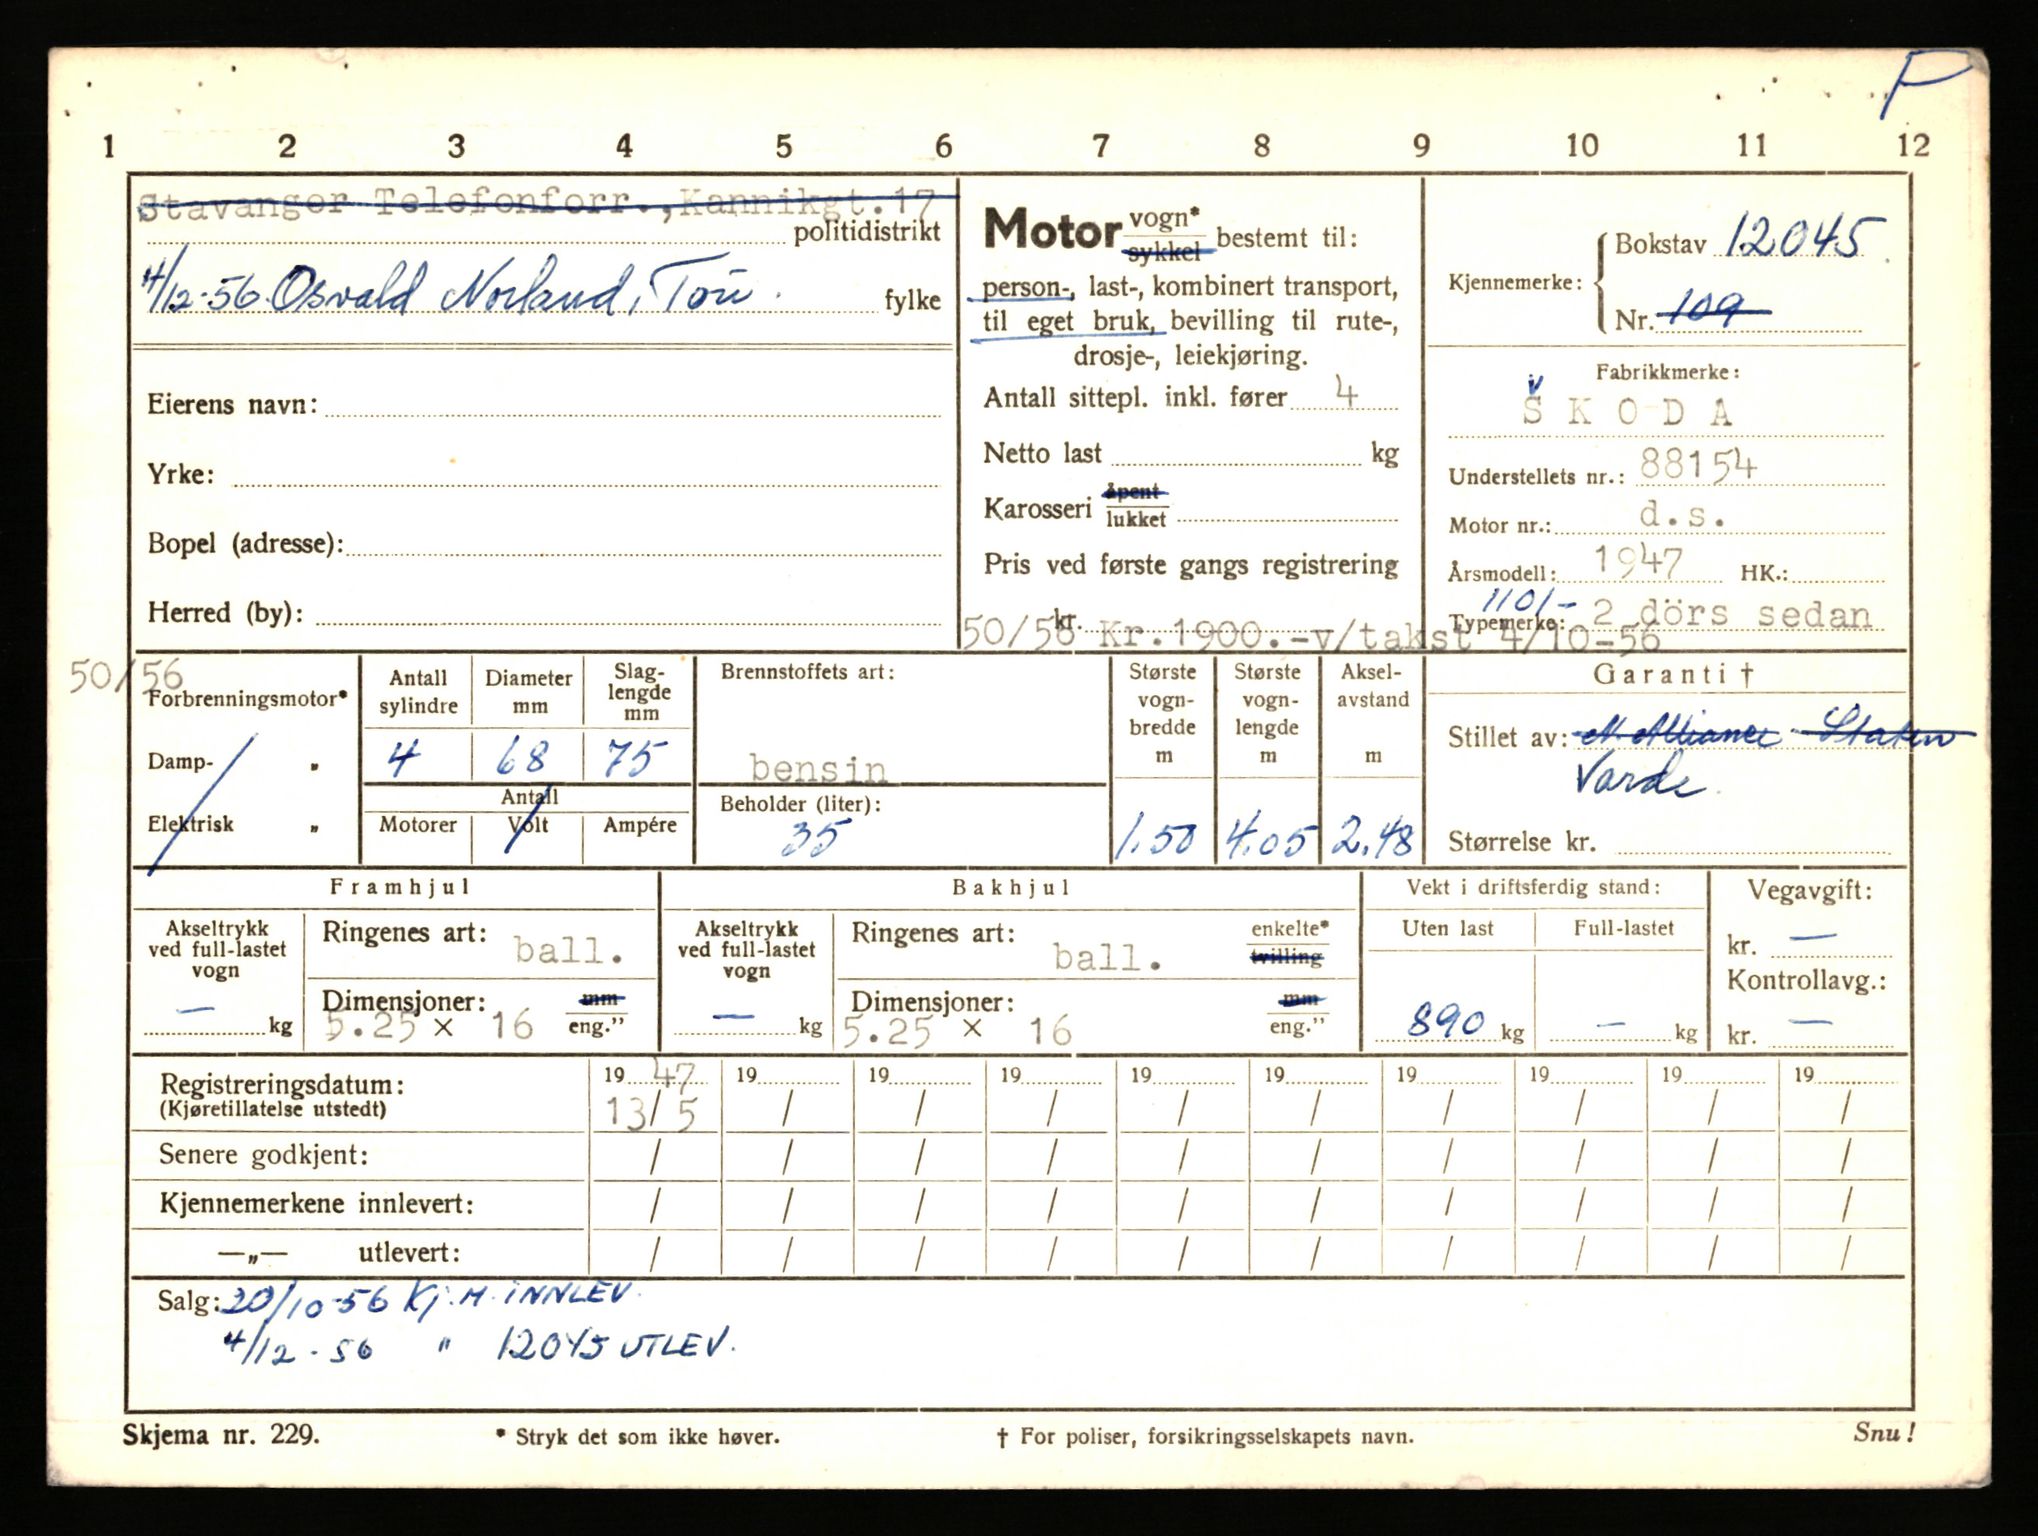 P
1 2 3 4 5 6 7 8 9 10 11 12
Stavanger Telefonforr., Kannikgt. 17
politidistrikt
4/12-56. Osvald Norland, Tau. fylke
Eierens navn:
Yrke:
Bopel (adresse):
Herred (by):
Motor vogn* sykkel bestemt til:
person-, last-, kombinert transport,
til eget bruk, bevilling til rute-,
drosje-, leiekjøring.
Antall sittepl. inkl. fører 4
Netto last kg
Karosseri åpent lukket
Pris ved første gangs registrering
kr.
50/56 Kr.1900.-v/takst 4/10-56
Kjennemerke: Bokstav 12045
Nr. 109
Fabrikkmerke:
ŠKODA
Understellets nr.: 88154
Motor nr.: d.s.
Årsmodell: 1947 HK.:
Typemerke: 1101/- 2 dörs sedan
50/56
Forbrenningsmotor*
Damp- "
Elektrisk "
Antall sylindre Diameter mm Slaglengde mm
4 68 75
Antall
Motorer Volt Ampére
Brennstoffets art:
bensin
Beholder (liter):
35
Største vognbredde m 1.50
Største vognlengde m 4.05
Akselavstand m 2.48
Garanti †
Stillet av: N. Alliance Staken
Varde
Størrelse kr.
Framhjul
Akseltrykk ved full-lastet vogn
— kg
Ringenes art: ball.
Dimensjoner: mm
5.25 × 16 eng."
Bakhjul
Akseltrykk ved full-lastet vogn
— kg
Ringenes art: ball. enkelte* tvilling
Dimensjoner: mm
5.25 × 16 eng."
Vekt i driftsferdig stand:
Uten last Full-lastet
890 kg — kg
Vegavgift:
kr. —
Kontrollavg.:
kr. —
Registreringsdatum: 19 47 19 19 19 19 19 19 19 19 19
(Kjøretillatelse utstedt) 13/5 / / / / / / / / /
Senere godkjent: / / / / / / / / / /
Kjennemerkene innlevert: / / / / / / / / / /
—„— utlevert: / / / / / / / / / /
Salg: 20/10-56 Kj.M. INNLEV.
4/12-56 " 12045 UTLEV.
Skjema nr. 229. * Stryk det som ikke høver. † For poliser, forsikringsselskapets navn. Snu!